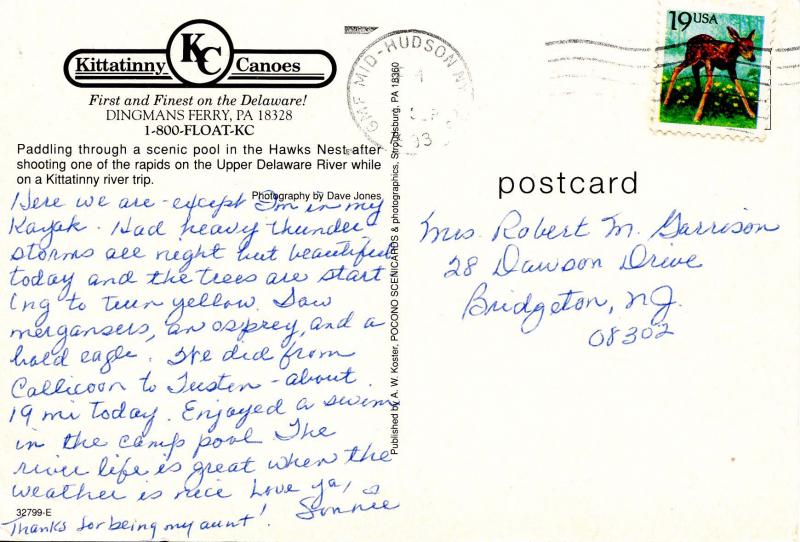 Kittatinny KC Canoes
First and Finest on the Delaware!
DINGMANS FERRY, PA 18328
1-800-FLOAT-KC
Paddling through a scenic pool in the Hawks Nest after
shooting one of the rapids on the Upper Delaware River while
on a Kittatinny river trip.
Photography by Dave Jones
Here we are - except I'm in my
Kayak. Had heavy thunder
storms all night but beautiful
today and the trees are start
ing to turn yellow. Saw
mergansers, an osprey, and a
bald eagle. We did from
Callicoon to Tusten - about
19 mi today. Enjoyed a swim
in the camp pool The
river life is great when the
weather is nice Love ya,
Sonnie
32799-E
Thanks for being my aunt!
Published by A. W. Koster, POCONO SCENICARDS & photographics, Stroudsburg, PA 18360
GMF MID-HUDSON NY
SEP
93
19 USA
postcard
Mrs Robert M. Garrison
28 Dawson Drive
Bridgeton, NJ.
08302